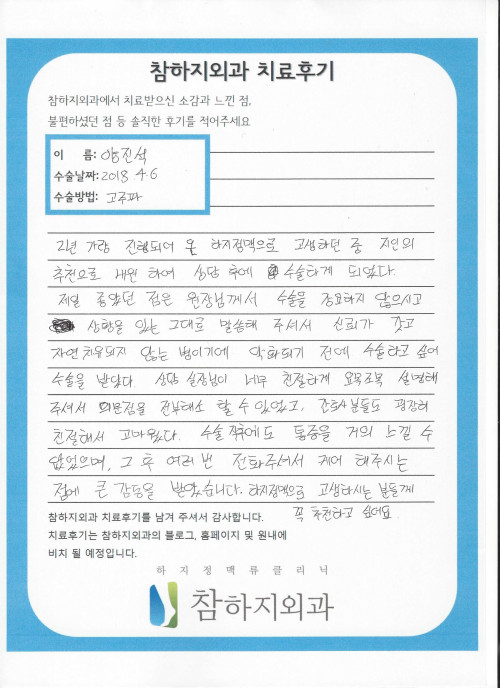 참하지외과 치료후기
참하지외과에서 치료받으신 소감과 느낀 점,
불편하셨던 점 등 솔직한 후기를 적어주세요
이 름: 양진석
수술날짜: 2018 4.6
수술방법: 고주파
2년 가량 진행되어 온 하지정맥으로 고생하던 중 지인의
추천으로 내원 하여 상담 후에 수술하게 되었다.
제일 좋았던 점은 원장님께서 수술을 강요하지 않으시고
상황을 있는 그대로 말씀해 주셔서 신뢰가 갔고
자연치유되지 않는 병이기에 악화되기 전에 수술하고 싶어
수술을 받았다 상담 실장님이 너무 친절하게 요목조목 설명해
주셔서 의문점을 전부해소 할 수 있었고, 간호사분들도 굉장히
친절해서 고마웠다. 수술 직후에도 통증을 거의 느낄 수
없었으며, 그 후 여러 번 전화주셔서 케어 해주시는
점에 큰 감동을 받았습니다. 하지정맥으로 고생하시는 분들께
꼭 추천하고 싶어요.
참하지외과 치료후기를 남겨 주셔서 감사합니다.
치료후기는 참하지외과의 블로그, 홈페이지 및 원내에
비치 될 예정입니다.
하지정맥류클리닉
참하지외과